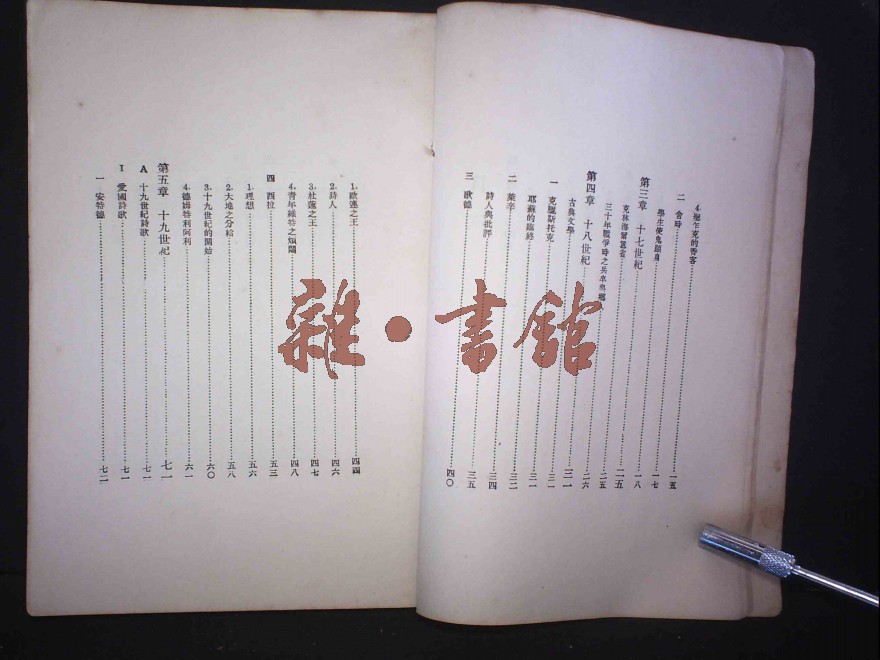 乍克的香客 一五
二 會時 一七
學生使鬼顯身 一八
第三章 十七世紀 二五
克林海爾隱者 二五
三十年戰爭時之兵卒與鄉 二六
第四章 十八世紀
古典文學 三一
一 克羅斯托克 三一
耶蘇的臨終 三二
二 萊辛 三四
詩人與批評 三五
三 歌德 四〇
1. 歐蓮之王 四四
2. 詩人 四六
3. 杜蓮之王 四七
4. 青年維特之煩悶 四八
四 西拉 五三
1. 理想 五六
2. 大地之分給 五八
3. 十九世紀的開始 六〇
4. 德姆特利阿利 六一
第五章 十九世紀 七一
A 十九世紀詩歌 七一
I 愛國詩歌 七一
一 安特德 七二
雜·書館